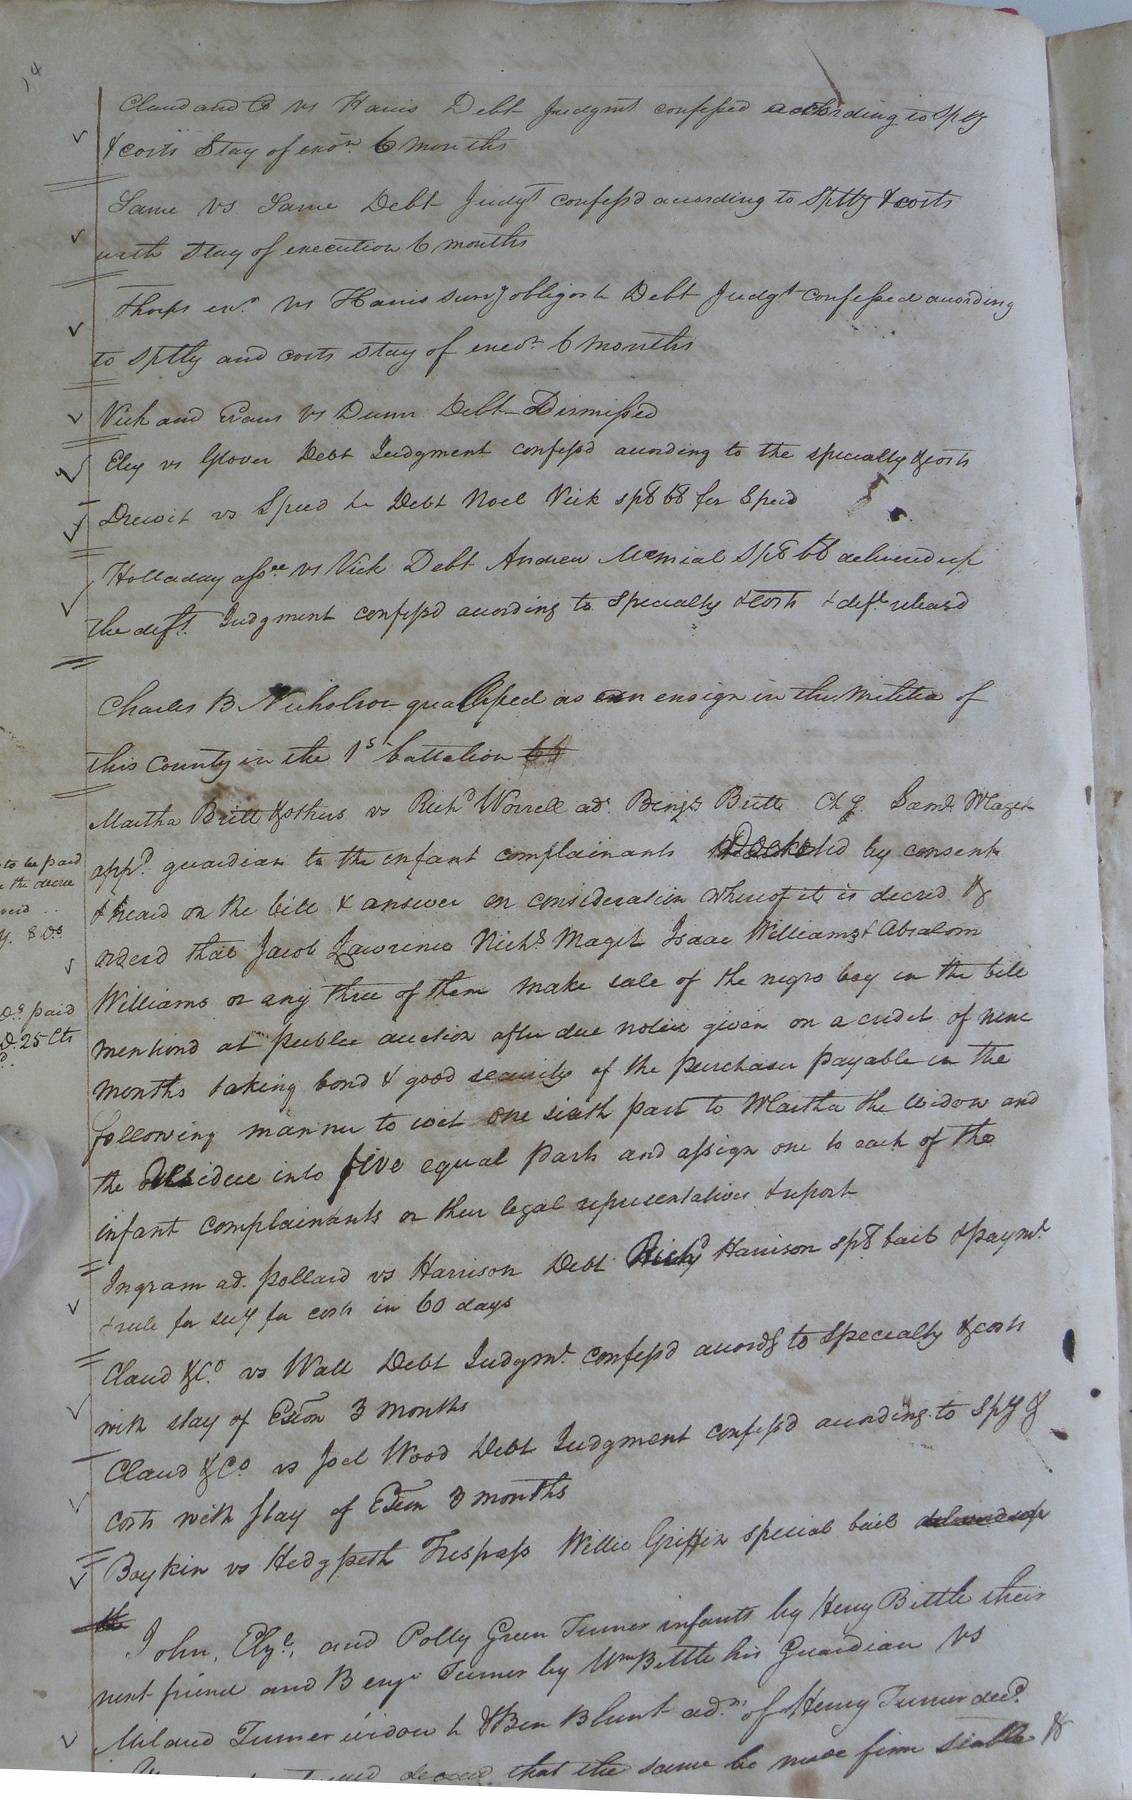 14
Claud and Co vs Harris Debt Judgmt confessed according to Splty
& costs Stay of exon. 6 months
Same vs Same Debt Judgt confessd according to Splty & costs
with Stay of execution 6 months
Thorps exr. vs Harris survg obligor &c Debt Judgt confessed according
to Splty and costs stay of exeon 6 months
Vick and Evans vs Dunn Debt Dismissed
Eley vs Glover Debt Judgment confessd according to the specialty & costs
Drewit vs Speed &c Debt Noel Vick spl bl for Speed
Holladay assee vs Vick Debt Andrew Mcmial Spl bl delivered up
the deft. Judgment confessd according to Specialty & costs & deft releasd
Charles B Nicholson qualified as an ensign in the Militia of
this County in the 1st battalion
Martha Britt & others vs Richd Worrell ad. Benjn Britt Chy. Saml Maget
appd. guardian to the infant complainants Docketed by consent
& heard on the bill & answer on consideration whereof it is decred &
orderd that Jacob Lawrence Nichs Maget Isaac Williams & Absalom
Williams or any three of them make sale of the negro boy in the bill
mentiond at public auction after due notice given on a credit of nine
months taking bond & good security of the purchaser payable in the
following manner to wit one sixth part to Martha the widow and
the residue into five equal parts and assign one to each of the
infant complainants or their legal representatives & report
to be paid
the decree
Ds paid
D. 25 Cts
Ingram ad. Pollard vs Harrison Debt Richd Harrison spl bail & paymt
& rule for secy for costs in 60 days
Claud & Co. vs Wall Debt Judgmt. confessd accordg to Specialty & costs
with stay of Exon 3 months
Claud & Co vs Joel Wood Debt Judgment confessd according to Spy &
costs with Stay of Exon 3 months
Boykin vs Hedgpeth Trespass Willie Griffin special bail delivered up
the
John, Elyc, and Polly Green Turner infants by Henry Bittle their
next friend and Benja Turner by Wm Bittle his Guardian vs
Miland Turner widow &c & Ben Blunt adm. of Henry Turner decd.
decred that the same be made firm stable &